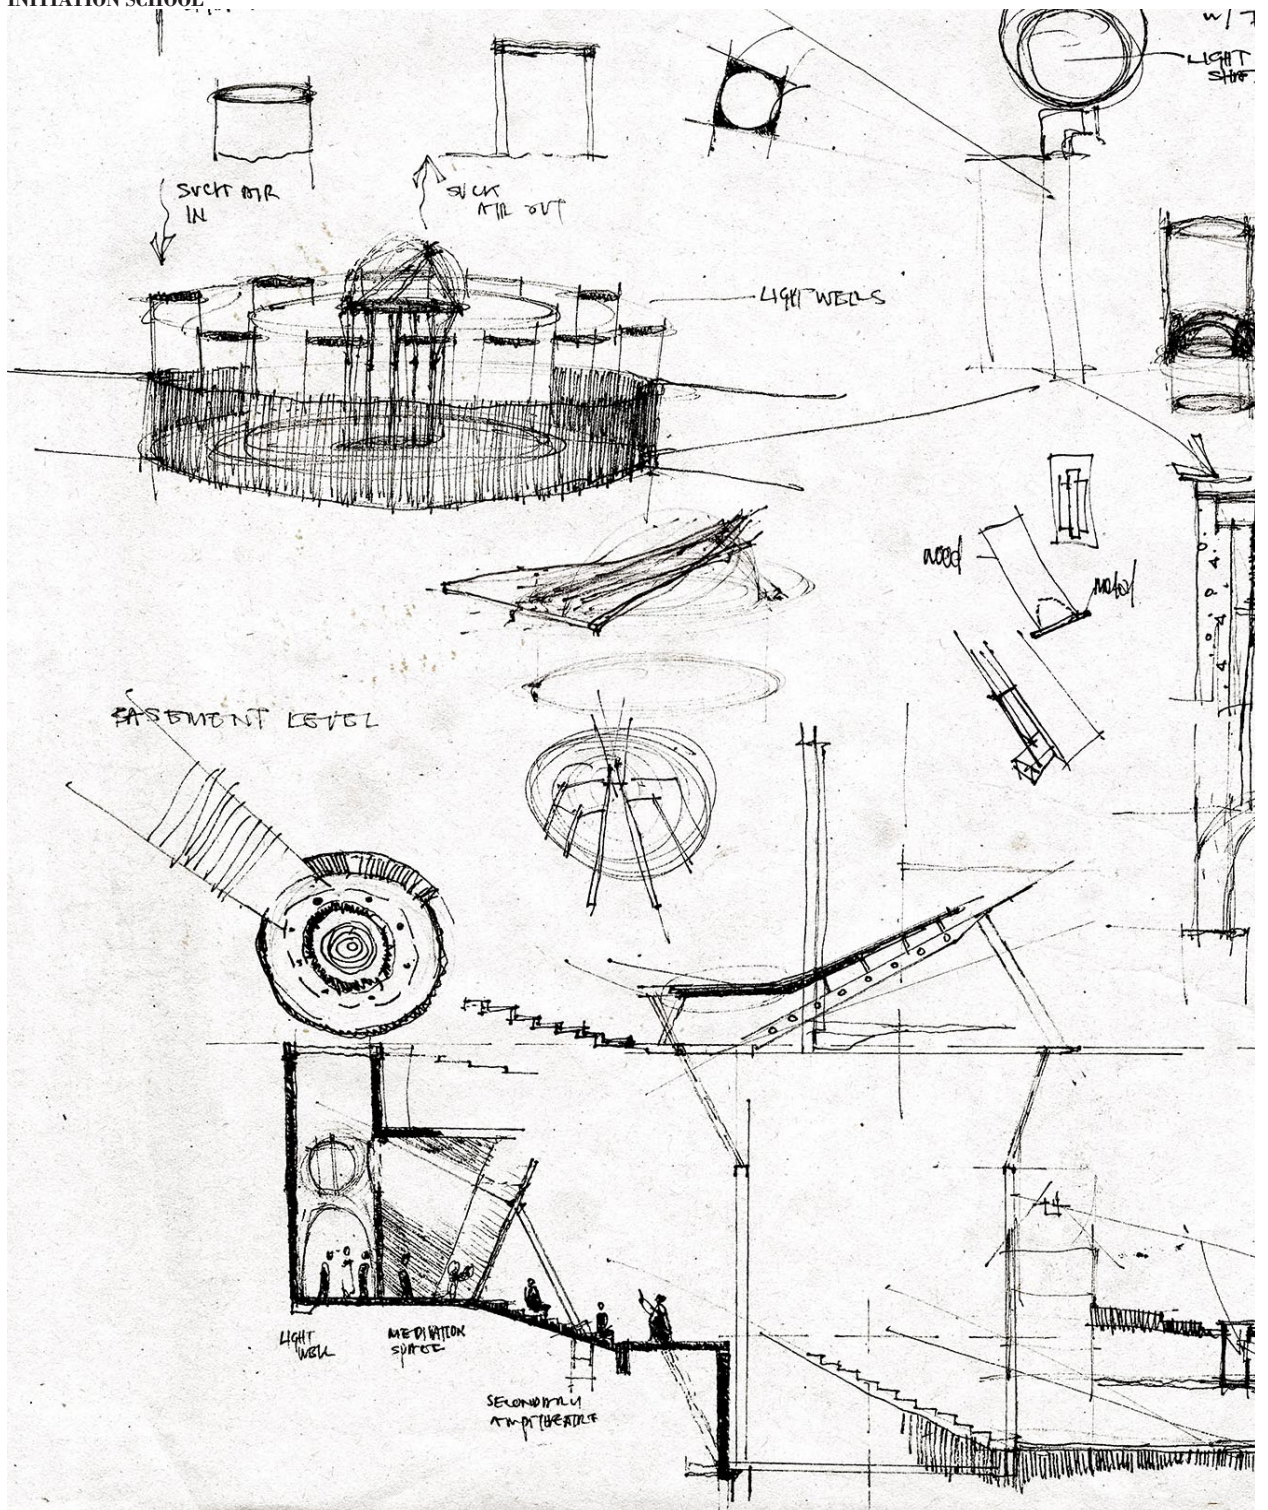 INITIATION SCHOOL
W/
LIGHT
SUCK AIR
IN
SUCK
AIR OUT
LIGHT WELLS
wood
metal
BASEMENT LEVEL
LIGHT
WELL
MEDITATION
SPACE
SECONDARY
AMPITHEATRE